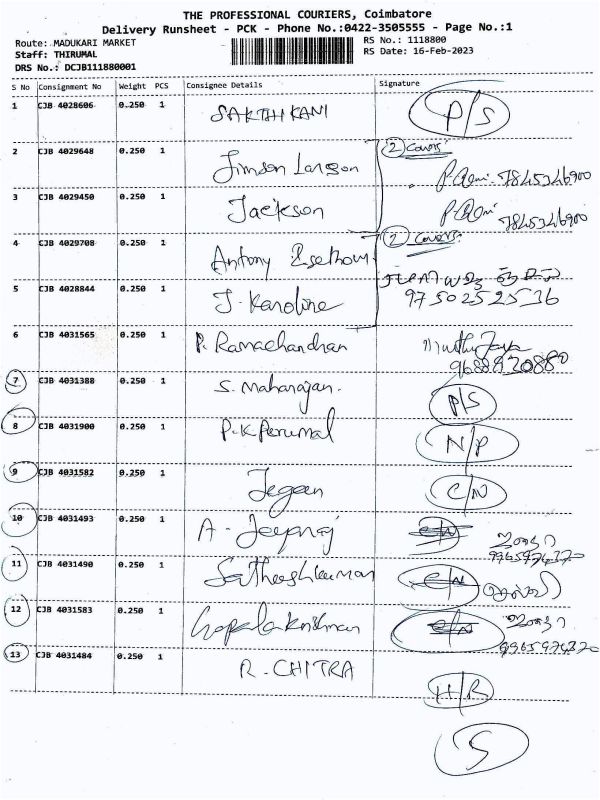 THE PROFESSIONAL COURIERS, Coimbatore
Delivery Runsheet - PCK - Phone No.:0422-3505555 - Page No.:1
Route: MADUKARI MARKET RS No.: 1118800
Staff: THIRUMAL RS Date: 16-Feb-2023
DRS No.: DCJB111880001
S No Consignment No Weight PCS Consignee Details Signature
1 CJB 4028606 0.250 1 SAKTHI KANI P/S
2 CJB 4029648 0.250 1 Jimson Larson 2 Covers
7845346900
3 CJB 4029450 0.250 1 Jackson
7845346900
4 CJB 4029708 0.250 1 Antony 2 Covers
5 CJB 4028844 0.250 1 J. Karoline 9750252536
6 CJB 4031565 0.250 1 P. Ramachandran
9688920880
7 CJB 4031388 0.250 1 S. Maharajan. P/S
8 CJB 4031900 0.250 1 P.K Perumal N/P
9 CJB 4031582 0.250 1 Jegan C/N
10 CJB 4031493 0.250 1 A. Jeyaraj C/N
9965974370
11 CJB 4031490 0.250 1 Satheeshkumar C/N
12 CJB 4031583 0.250 1 Gopalakrishnan C/N
9965974370
13 CJB 4031484 0.250 1 R. CHITRA H/R
S